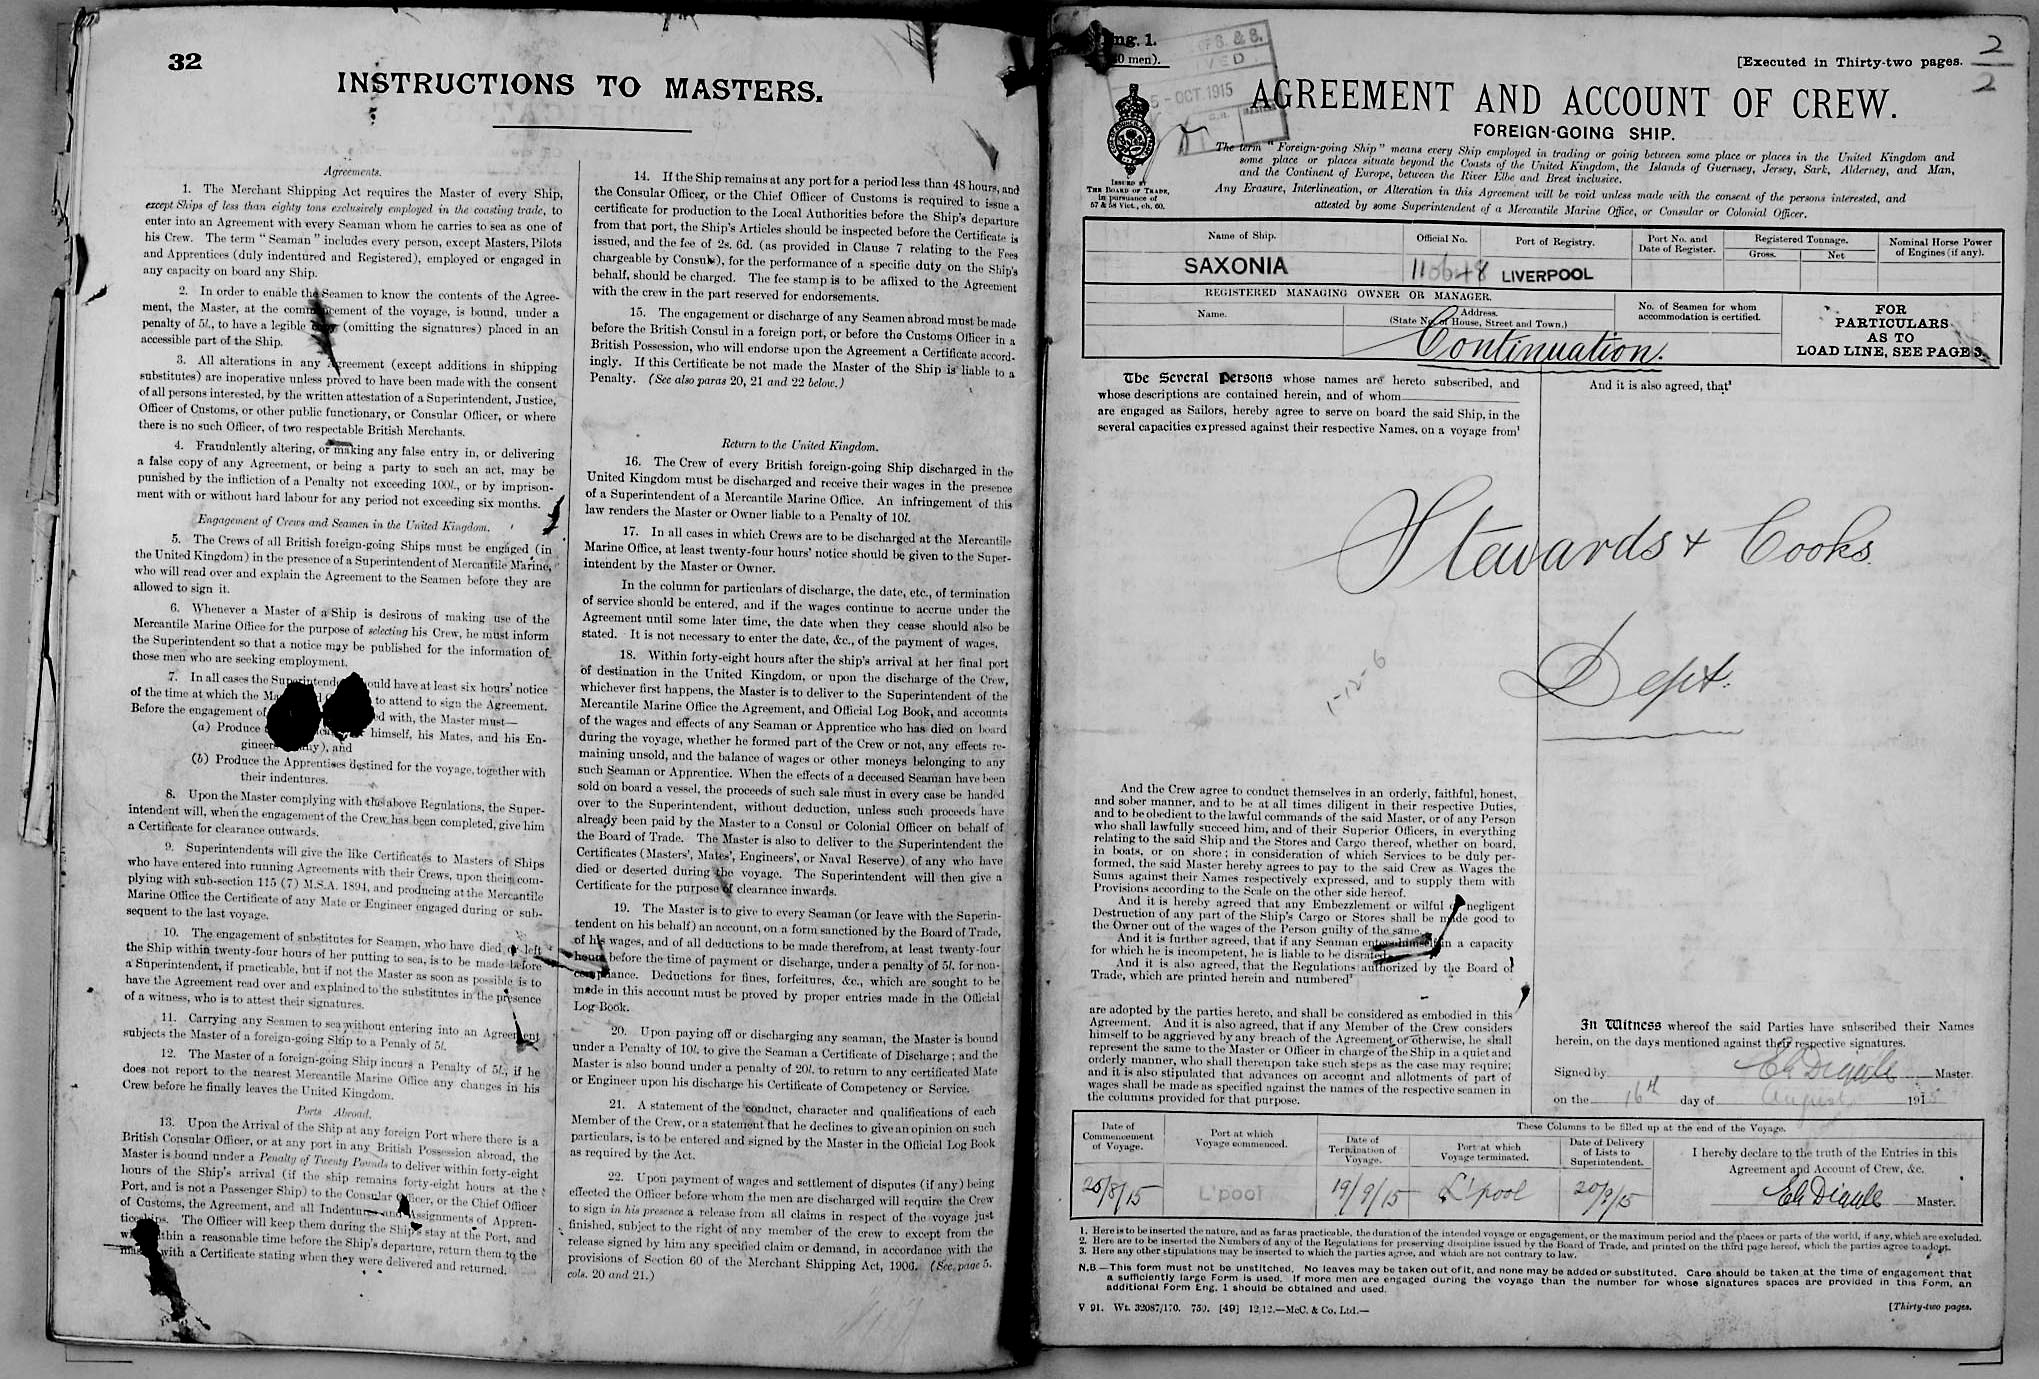 32
INSTRUCTIONS TO MASTERS.
Agreements.
1. The Merchant Shipping Act requires the Master of every Ship,
except Ships of less than eighty tons exclusively employed in the coasting trade, to
enter into an Agreement with every Seaman whom he carries to sea as one of
his Crew. The term "Seaman" includes every person, except Masters, Pilots
and Apprentices (duly indentured and Registered), employed or engaged in
any capacity on board any Ship.
2. In order to enable the Seamen to know the contents of the Agree-
ment, the Master, at the commencement of the voyage, is bound, under a
penalty of 5l., to have a legible copy (omitting the signatures) placed in an
accessible part of the Ship.
3. All alterations in any Agreement (except additions in shipping
substitutes) are inoperative unless proved to have been made with the consent
of all persons interested, by the written attestation of a Superintendent, Justice,
Officer of Customs, or other public functionary, or Consular Officer, or where
there is no such Officer, of two respectable British Merchants.
4. Fraudulently altering, or making any false entry in, or delivering
a false copy of any Agreement, or being a party to such an act, may be
punished by the infliction of a Penalty not exceeding 100l., or by imprison-
ment with or without hard labour for any period not exceeding six months.
Engagement of Crews and Seamen in the United Kingdom.
5. The Crews of all British foreign-going Ships must be engaged (in
the United Kingdom) in the presence of a Superintendent of Mercantile Marine,
who will read over and explain the Agreement to the Seamen before they are
allowed to sign it.
6. Whenever a Master of a Ship is desirous of making use of the
Mercantile Marine Office for the purpose of selecting his Crew, he must inform
the Superintendent so that a notice may be published for the information of
those men who are seeking employment.
7. In all cases the Superintendent should have at least six hours' notice
of the time at which the to attend to sign the Agreement.
Before the engagement of with, the Master must—
(a) Produce himself, his Mates, and his En-
gineers any), and
(b) Produce the Apprentises destined for the voyage, together with
their indentures.
8. Upon the Master complying with the above Regulations, the Super-
intendent will, when the engagement of the Crew has been completed, give him
a Certificate for clearance outwards.
9. Superintendents will give the like Certificates to Masters of Ships
who have entered into running Agreements with their Crews, upon their com-
plying with sub-section 115 (7) M.S.A. 1894, and producing at the Mercantile
Marine Office the Certificate of any Mate or Engineer engaged during or sub-
sequent to the last voyage.
10. The engagement of substitutes for Seamen, who have died or left
the Ship within twenty-four hours of her putting to sea, is to be made before
a Superintendent, if practicable, but if not the Master as soon as possible is to
have the Agreement read over and explained to the substitutes in the presence
of a witness, who is to attest their signatures.
11. Carrying any Seamen to sea without entering into an Agreement
subjects the Master of a foreign-going Ship to a Penaly of 5l.
12. The Master of a foreign-going Ship incurs a Penalty of 5l., if he
does not report to the nearest Mercantile Marine Office any changes in his
Crew before he finally leaves the United Kingdom.
Ports Abroad.
13. Upon the Arrival of the Ship at any foreign Port where there is a
British Consular Officer, or at any port in any British Possession abroad, the
Master is bound under a Penalty of Twenty Pounds to deliver within forty-eight
hours of the Ship's arrival (if the ship remains forty-eight hours at the
Port, and is not a Passenger Ship) to the Consular Officer, or the Chief Officer
of Customs, the Agreement, and all Indentures and Assignments of Appren-
ticeships. The Officer will keep them during the Ship's stay at the Port, and
within a reasonable time before the Ship's departure, return them to the
master with a Certificate stating when they were delivered and returned.
14. If the Ship remains at any port for a period less than 48 hours, and
the Consular Officer, or the Chief Officer of Customs is required to issue a
certificate for production to the Local Authorities before the Ship's departure
from that port, the Ship's Articles should be inspected before the Certificate is
issued, and the fee of 2s. 6d. (as provided in Clause 7 relating to the Fees
chargeable by Consuls), for the performance of a specific duty on the Ship's
behalf, should be charged. The fee stamp is to be affixed to the Agreement
with the crew in the part reserved for endorsements.
15. The engagement or discharge of any Seamen abroad must be made
before the British Consul in a foreign port, or before the Customs Officer in a
British Possession, who will endorse upon the Agreement a Certificate accord-
ingly. If this Certificate be not made the Master of the Ship is liable to a
Penalty. (See also paras 20, 21 and 22 below.)
Return to the United Kingdom.
16. The Crew of every British foreign-going Ship discharged in the
United Kingdom must be discharged and receive their wages in the presence
of a Superintendent of a Mercantile Marine Office. An infringement of this
law renders the Master or Owner liable to a Penalty of 10l.
17. In all cases in which Crews are to be discharged at the Mercantile
Marine Office, at least twenty-four hours' notice should be given to the Super-
intendent by the Master or Owner.
In the column for particulars of discharge, the date, etc., of termination
of service should be entered, and if the wages continue to accrue under the
Agreement until some later time, the date when they cease should also be
stated. It is not necessary to enter the date, &c., of the payment of wages.
18. Within forty-eight hours after the ship's arrival at her final port
of destination in the United Kingdom, or upon the discharge of the Crew,
whichever first happens, the Master is to deliver to the Superintendent of the
Mercantile Marine Office the Agreement, and Official Log Book, and accounts
of the wages and effects of any Seaman or Apprentice who has died on board
during the voyage, whether he formed part of the Crew or not, any effects re-
maining unsold, and the balance of wages or other moneys belonging to any
such Seaman or Apprentice. When the effects of a deceased Seaman have been
sold on board a vessel, the proceeds of such sale must in every case be handed
over to the Superintendent, without deduction, unless such proceeds have
already been paid by the Master to a Consul or Colonial Officer on behalf of
the Board of Trade. The Master is also to deliver to the Superintendent the
Certificates (Masters', Mates', Engineers', or Naval Reserve) of any who have
died or deserted during the voyage. The Superintendent will then give a
Certificate for the purpose of clearance inwards.
19. The Master is to give to every Seaman (or leave with the Superin-
tendent on his behalf) an account, on a form sanctioned by the Board of Trade,
of his wages, and of all deductions to be made therefrom, at least twenty-four
hours before the time of payment or discharge, under a penalty of 5l. for non-
compliance. Deductions for fines, forfeitures, &c., which are sought to be
made in this account must be proved by proper entries made in the Official
Log Book.
20. Upon paying off or discharging any seaman, the Master is bound
under a Penalty of 10l. to give the Seaman a Certificate of Discharge; and the
Master is also bound under a penalty of 20l. to return to any certificated Mate
or Engineer upon his discharge his Certificate of Competency or Service.
21. A statement of the conduct, character and qualifications of each
Member of the Crew, or a statement that he declines to give an opinion on such
particulars, is to be entered and signed by the Master in the Official Log Book
as required by the Act.
22. Upon payment of wages and settlement of disputes (if any) being
effected the Officer before whom the men are discharged will require the Crew
to sign in his presence a release from all claims in respect of the voyage just
finished, subject to the right of any member of the crew to except from the
release signed by him any specified claim or demand, in accordance with the
provisions of Section 60 of the Merchant Shipping Act, 1906. (See page 5.
cols. 20 and 21.)
ng. 1.
0 men).
& S.
IVED
5 - OCT. 1915
[Executed in Thirty-two pages.
2
2
AGREEMENT AND ACCOUNT OF CREW.
FOREIGN-GOING SHIP.
ISSUED BY
THE BOARD OF TRADE,
in pursuance of
57 & 58 Vict., ch. 60.
The term "Foreign-going Ship" means every Ship employed in trading or going between some place or places in the United Kingdom and
some place or places situate beyond the Coasts of the United Kingdom, the Islands of Guernsey, Jersey, Sark, Alderney, and Man,
and the Continent of Europe, between the River Elbe and Brest inclusive.
Any Erasure, Interlineation, or Alteration in this Agreement will be void unless made with the consent of the persons interested, and
attested by some Superintendent of a Mercantile Marine Office, or Consular or Colonial Officer.
Name of Ship. Official No. Port of Registry. Port No. and Date of Register. Registered Tonnage. Gross. Net Nominal Horse Power of Engines (if any).
SAXONIA 110648 LIVERPOOL
REGISTERED MANAGING OWNER OR MANAGER.
Name. Address. (State No. of House, Street and Town.) No. of Seamen for whom accommodation is certified.
FOR
PARTICULARS
AS TO
LOAD LINE, SEE PAGE 3.
Continuation.
The Several Persons whose names are hereto subscribed, and
whose descriptions are contained herein, and of whom
are engaged as Sailors, hereby agree to serve on board the said Ship, in the
several capacities expressed against their respective Names, on a voyage from¹
And it is also agreed, that³
Stewards & Cooks
Dept.
1-12-6
And the Crew agree to conduct themselves in an orderly, faithful, honest,
and sober manner, and to be at all times diligent in their respective Duties,
and to be obedient to the lawful commands of the said Master, or of any Person
who shall lawfully succeed him, and of their Superior Officers, in everything
relating to the said Ship and the Stores and Cargo thereof, whether on board,
in boats, or on shore; in consideration of which Services to be duly per-
formed, the said Master hereby agrees to pay to the said Crew as Wages the
Sums against their Names respectively expressed, and to supply them with
Provisions according to the Scale on the other side hereof.
And it is hereby agreed that any Embezzlement or wilful or negligent
Destruction of any part of the Ship's Cargo or Stores shall be made good to
the Owner out of the wages of the Person guilty of the same.
And it is further agreed, that if any Seaman enters himself in a capacity
for which he is incompetent, he is liable to be disrated.
And it is also agreed, that the Regulations authorized by the Board of
Trade, which are printed herein and numbered²
are adopted by the parties hereto, and shall be considered as embodied in this
Agreement. And it is also agreed, that if any Member of the Crew considers
himself to be aggrieved by any breach of the Agreement or otherwise, he shall
represent the same to the Master or Officer in charge of the Ship in a quiet and
orderly manner, who shall thereupon take such steps as the case may require;
and it is also stipulated that advances on account and allotments of part of
wages shall be made as specified against the names of the respective seamen in
the columns provided for that purpose.
In Witness whereof the said Parties have subscribed their Names
herein, on the days mentioned against their respective signatures.
Signed by Master.
on the 16th day of August 1915
Date of Commencement of Voyage. Port at which Voyage commenced. These Columns to be filled up at the end of the Voyage.
Date of Termination of Voyage. Port at which Voyage terminated. Date of Delivery of Lists to Superintendent. I hereby declare to the truth of the Entries in this Agreement and Account of Crew, &c.
L'pool 19/9/15 L'pool 20/9/15 Master.
1. Here is to be inserted the nature, and as far as practicable, the duration of the intended voyage or engagement, or the maximum period and the places or parts of the world, if any, which are excluded.
2. Here are to be inserted the Numbers of any of the Regulations for preserving discipline issued by the Board of Trade, and printed on the third page hereof, which the parties agree to adopt.
3. Here any other stipulations may be inserted to which the parties agree, and which are not contrary to law.
N.B—This form must not be unstitched. No leaves may be taken out of it, and none may be added or substituted. Care should be taken at the time of engagement that
a sufficiently large Form is used. If more men are engaged during the voyage than the number for whose signatures spaces are provided in this Form, an
additional Form Eng. 1 should be obtained and used.
V 91. Wt. 32087/170. 750. [49] 12.12.—McC. & Co. Ltd.—
[Thirty-two pages.